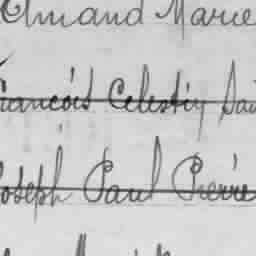 Amand Marie
François Célestin
Joseph Paul Pierre